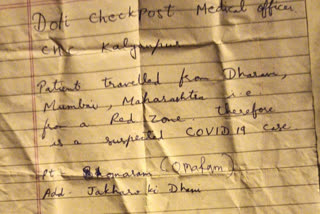 Doli Checkpost Medical officer
CHC Kalyanpur
Patient travelled from Dharavi,
Mumbai, Maharashtra i.e
from a Red Zone. therefore
is a suspected COVID19 case.
Pt. (Omaram)
Add. Jakharo ki Dhani